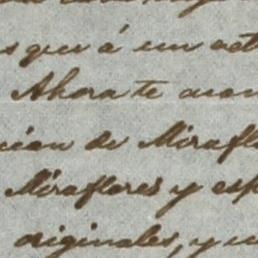 s que á un act
Ahora te acom
cion de Miraflo
Miraflores y esp
originales, y u